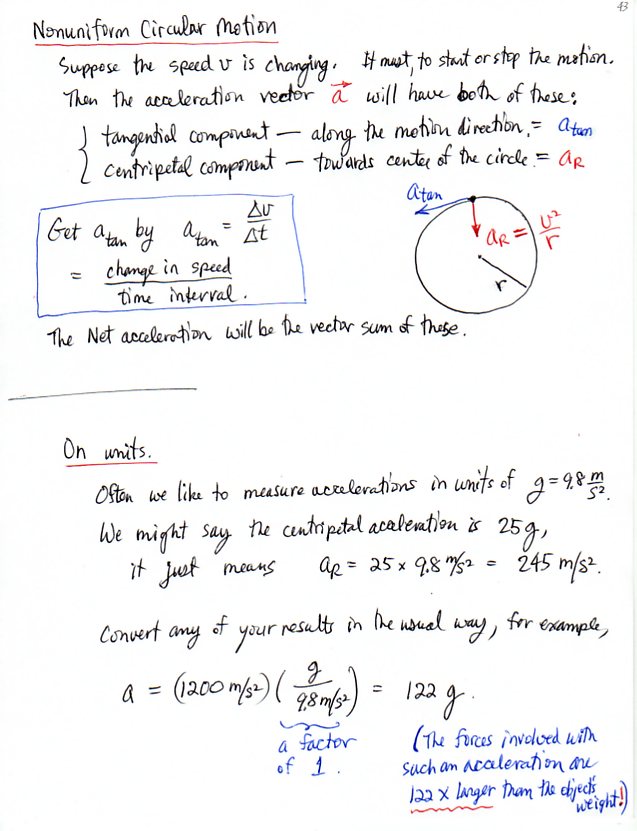 43
Nonuniform Circular Motion
Suppose the speed v is changing. It must, to start or stop the motion.
Then the acceleration vector a⃗ will have both of these:
{ tangential component — along the motion direction, = a_tan
centripetal component — towards center of the circle = a_R
Get a_tan by a_tan = Δv/Δt
= change in speed / time interval.
a_tan
a_R = v²/r
r
The Net acceleration will be the vector sum of these.
On units.
Often we like to measure accelerations in units of g = 9.8 m/s².
We might say the centripetal acceleration is 25g,
it just means a_R = 25 × 9.8 m/s² = 245 m/s².
Convert any of your results in the usual way, for example,
a = (1200 m/s²) ( g / 9.8 m/s² ) = 122 g.
a factor
of 1.
(The forces involved with
such an acceleration are
122 × larger than the objects
weight!)